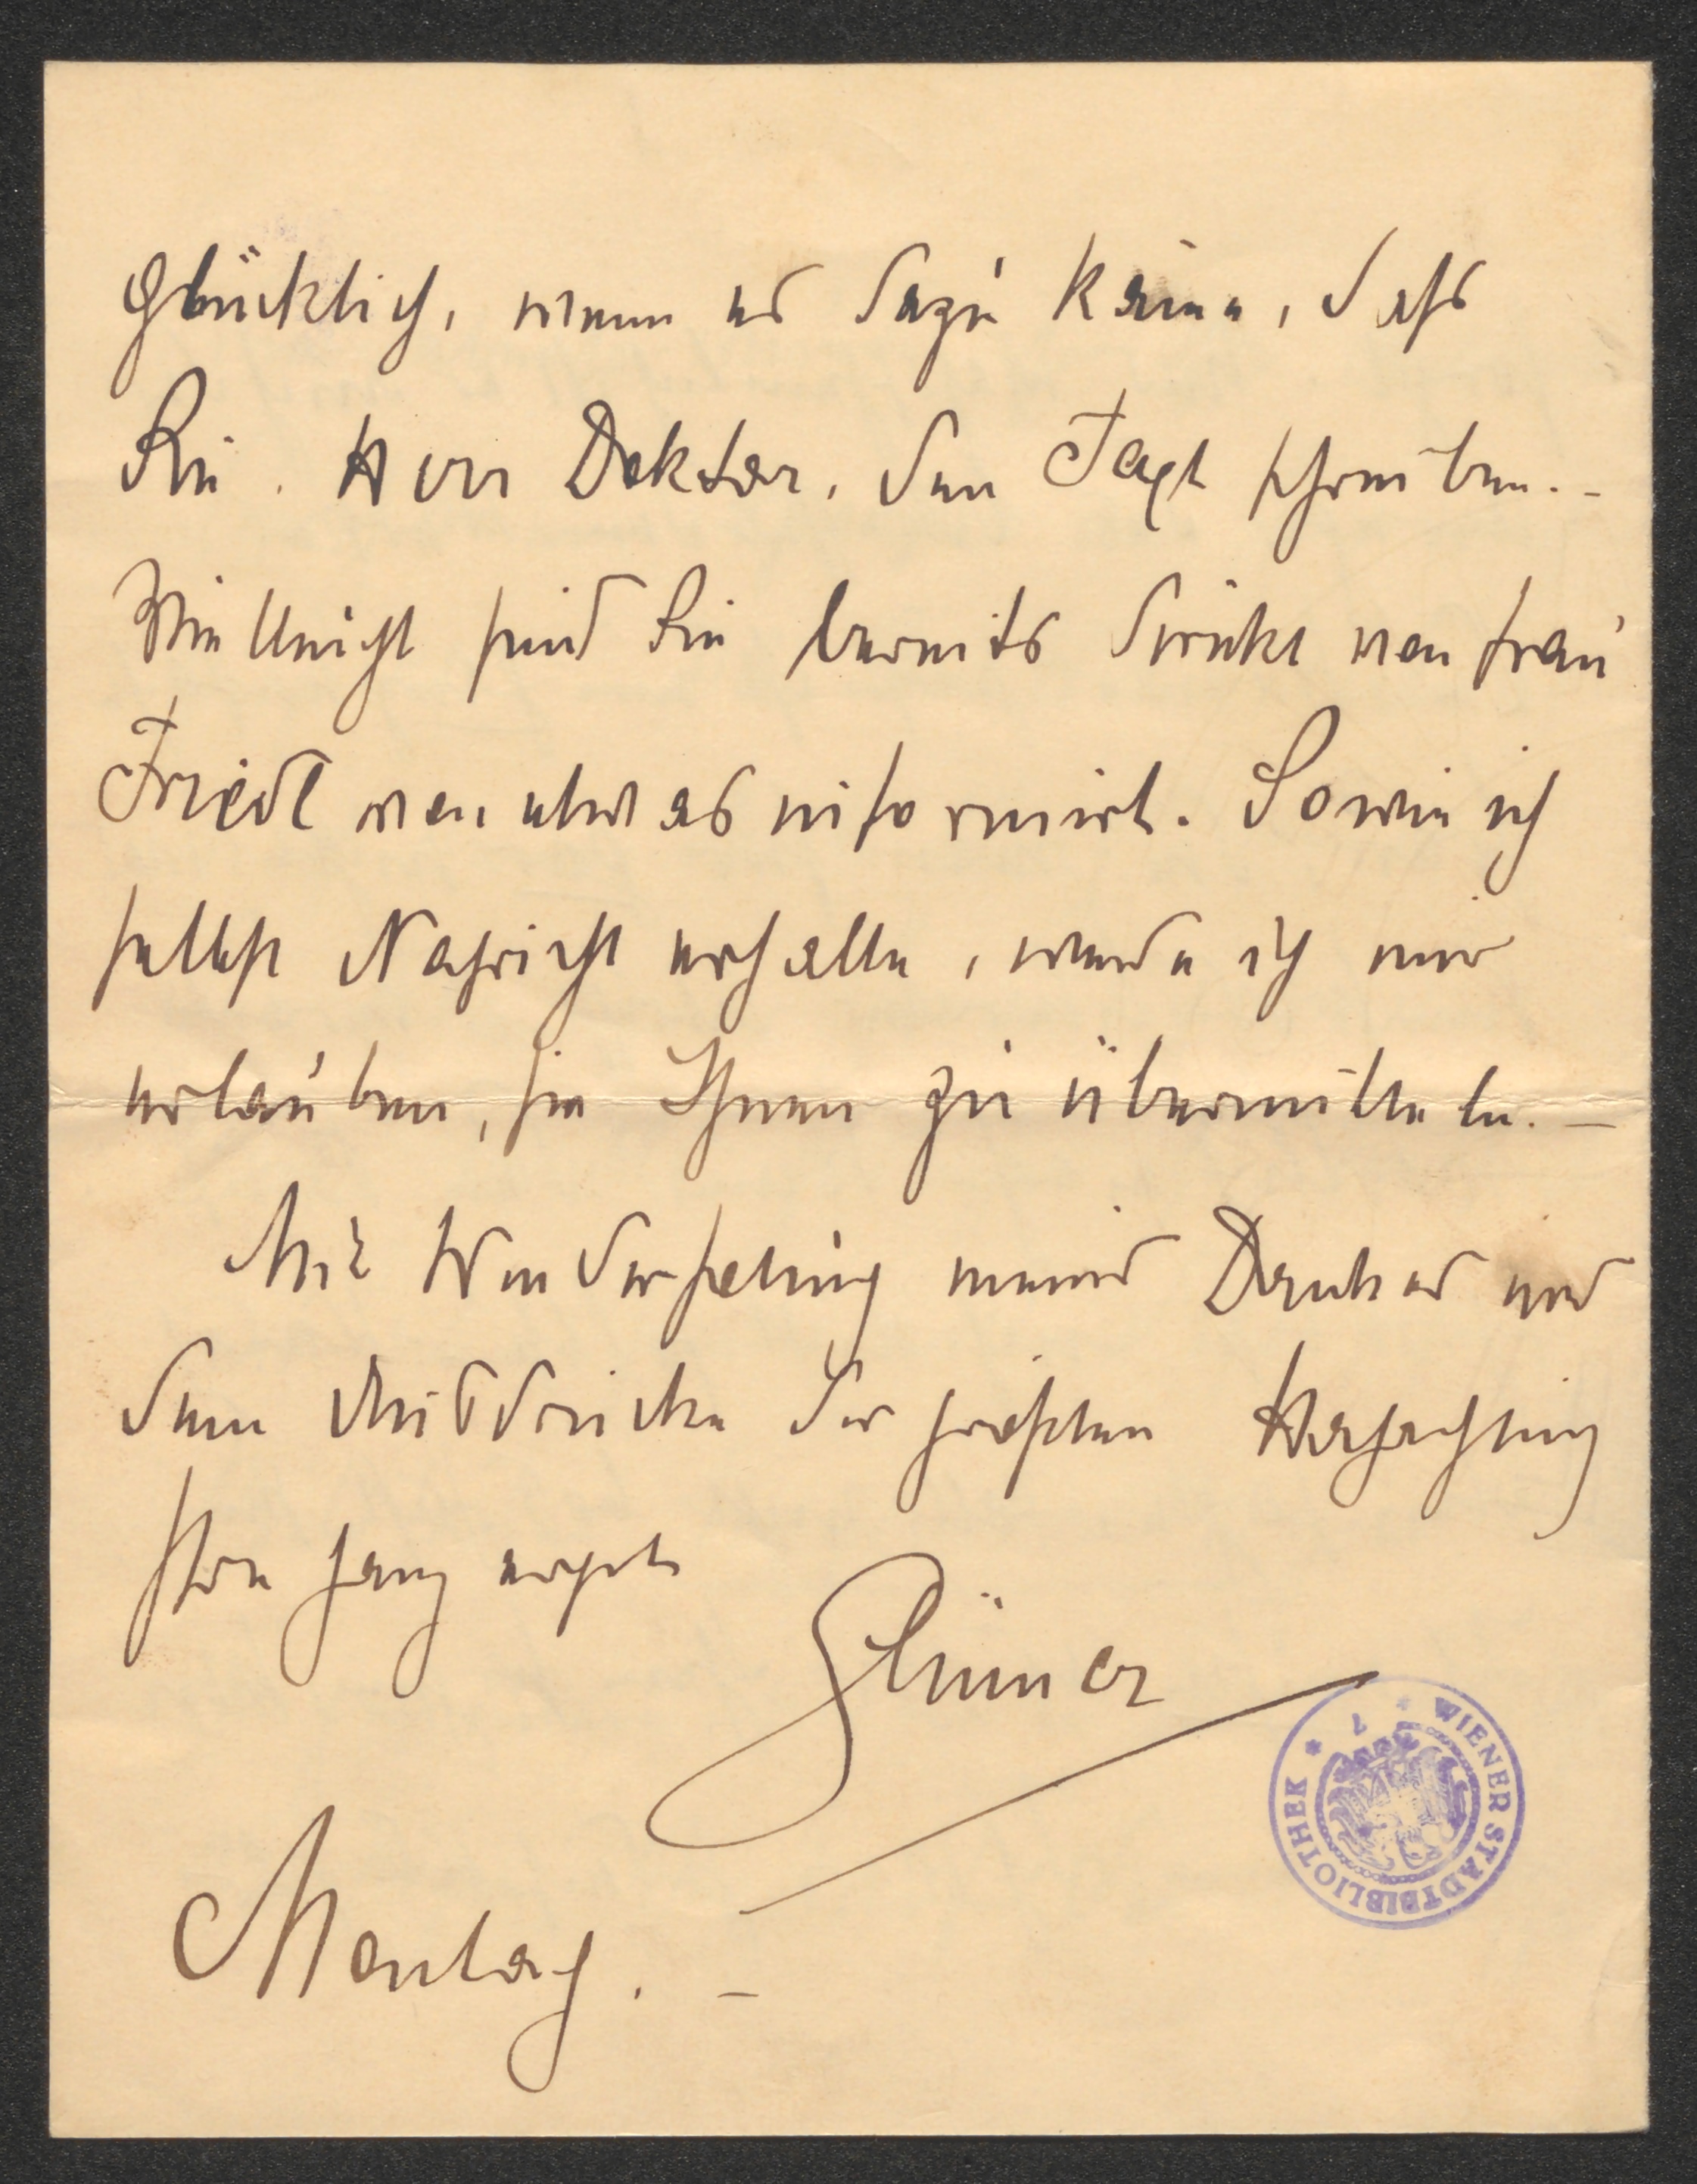 glücklich, wenn es dazu käme, daß
Sie, Herr Doktor, den Text schreiben. –
Vielleicht sind Sie bereits direkt von Frau
Friedl von etwas informirt. Sowie ich
selbst Nachricht erhalte, werde ich mir
erlauben, sie Ihnen zu übermitteln. –
Mit Wiederholung meines Dankes und
dem Ausdrucke der größten Hochachtung
Ihr ganz ergeb.
Glümer
Montag. –
* WIENER STADTBIBLIOTHEK *